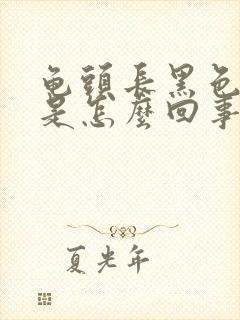 龟頭長黑色
是怎麼回事
夏光年